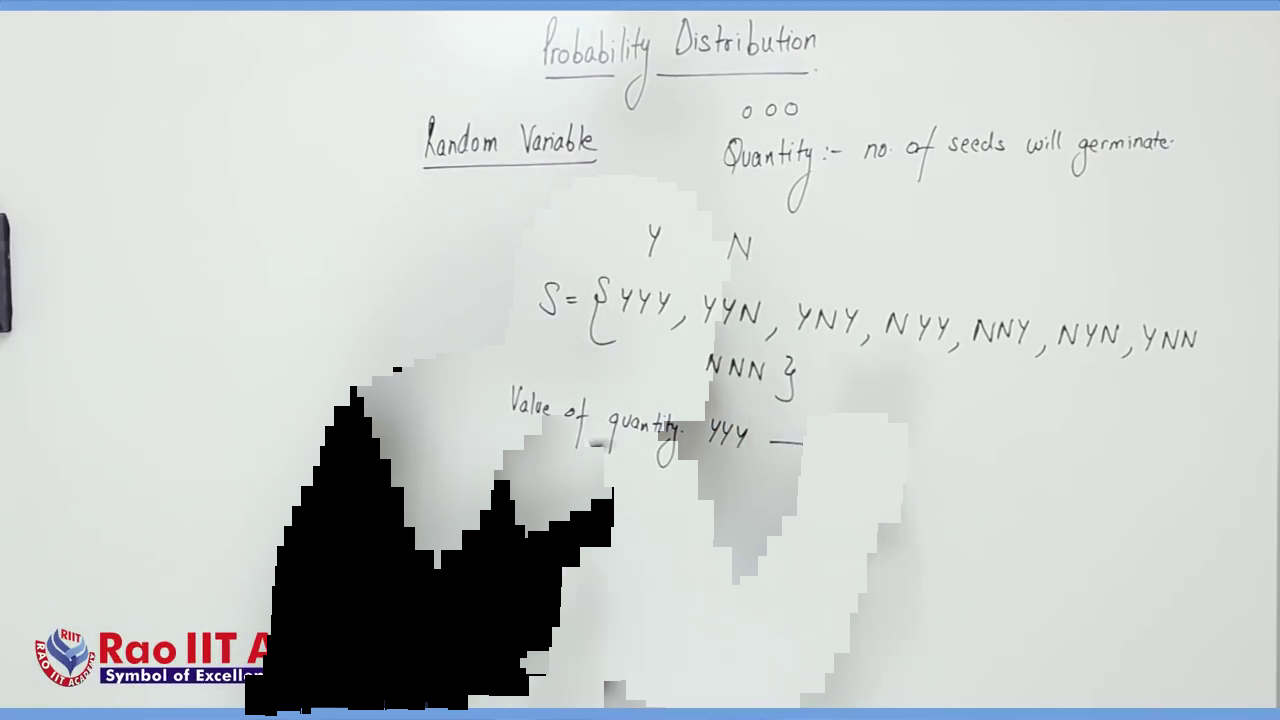 Probability Distribution
Random Variable
Quantity :- no. of seeds will germinate.
Y N
S = { YYY, YYN, YNY, NYY, NNY, NYN, YNN
NNN }
Value of quantity. YYY —
RIIT
RAO IIT ACADEMY
Rao IIT A
Symbol of Excellen